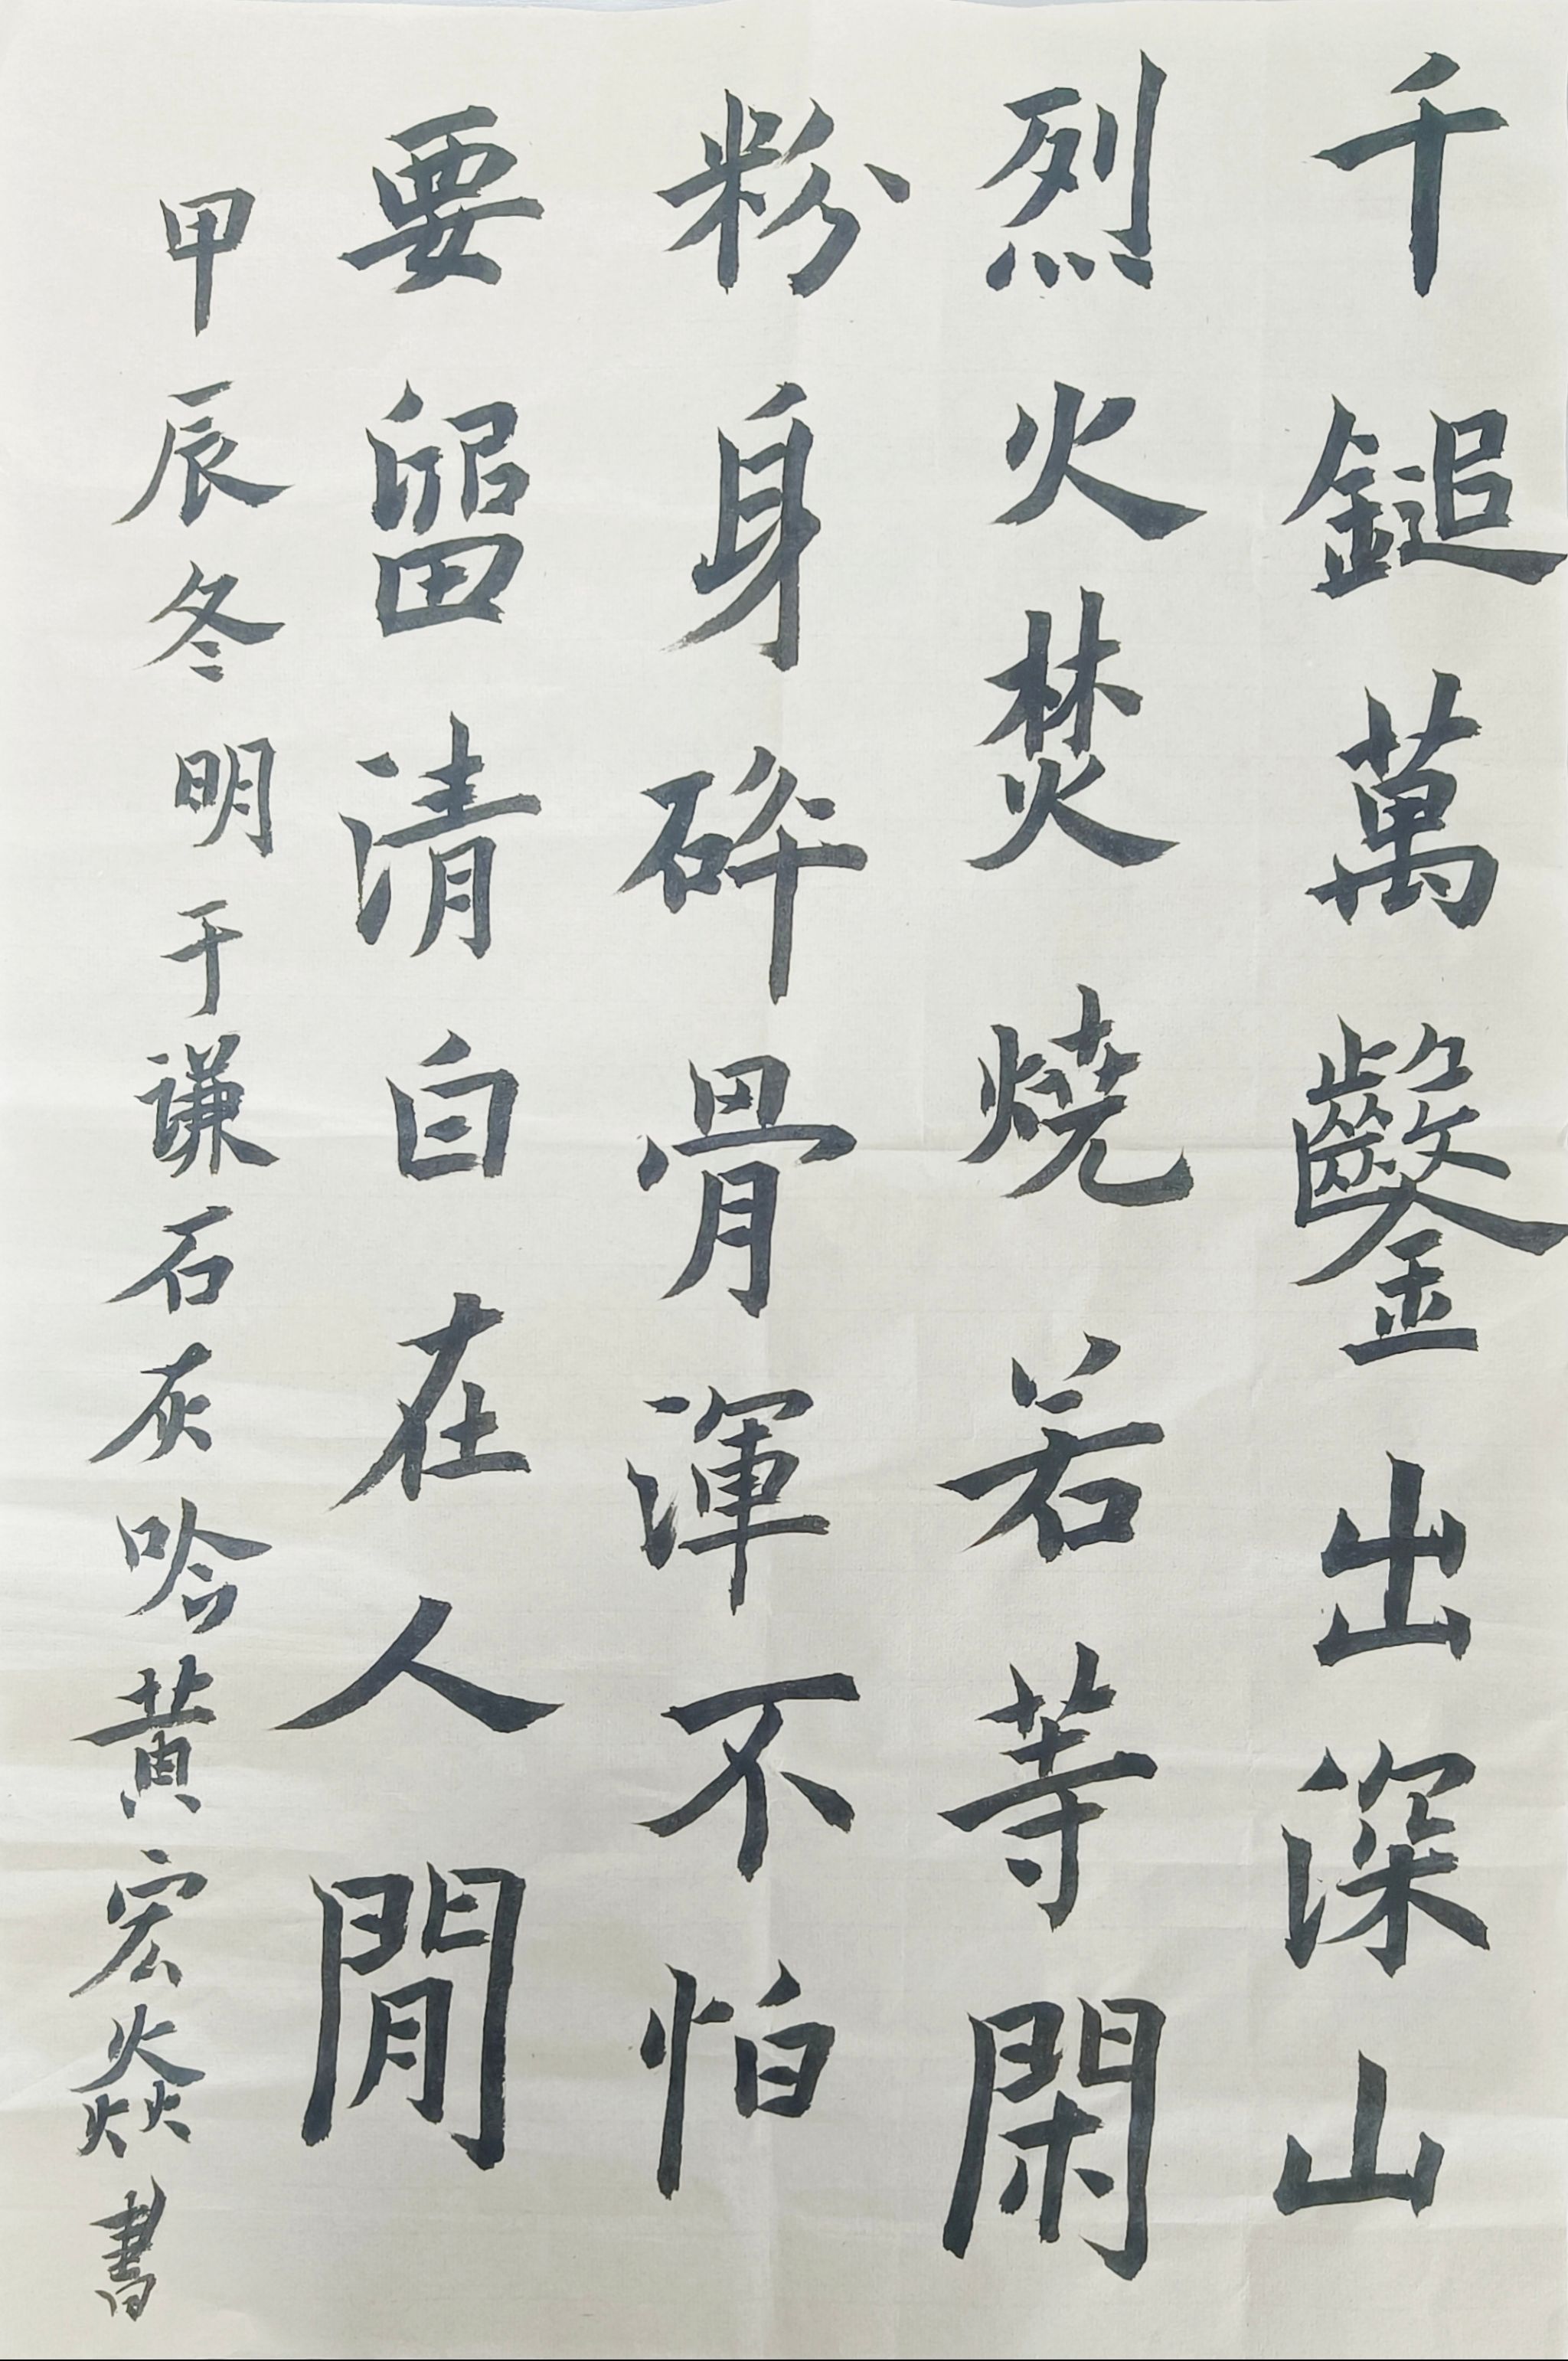 千鎚萬鑿出深山
烈火焚燒若等閑
粉身碎骨渾不怕
要留清白在人間
甲辰冬明于謙石灰唫黄宏焱書